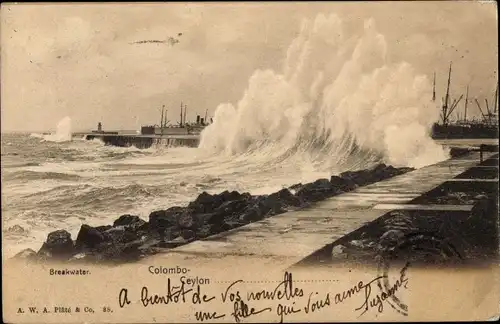 Breakwater.
Colombo-
Ceylon
A bientôt de vos nouvelles
une fille qui vous aime Suzanne
A. W. A. Plâté & Co, 38.